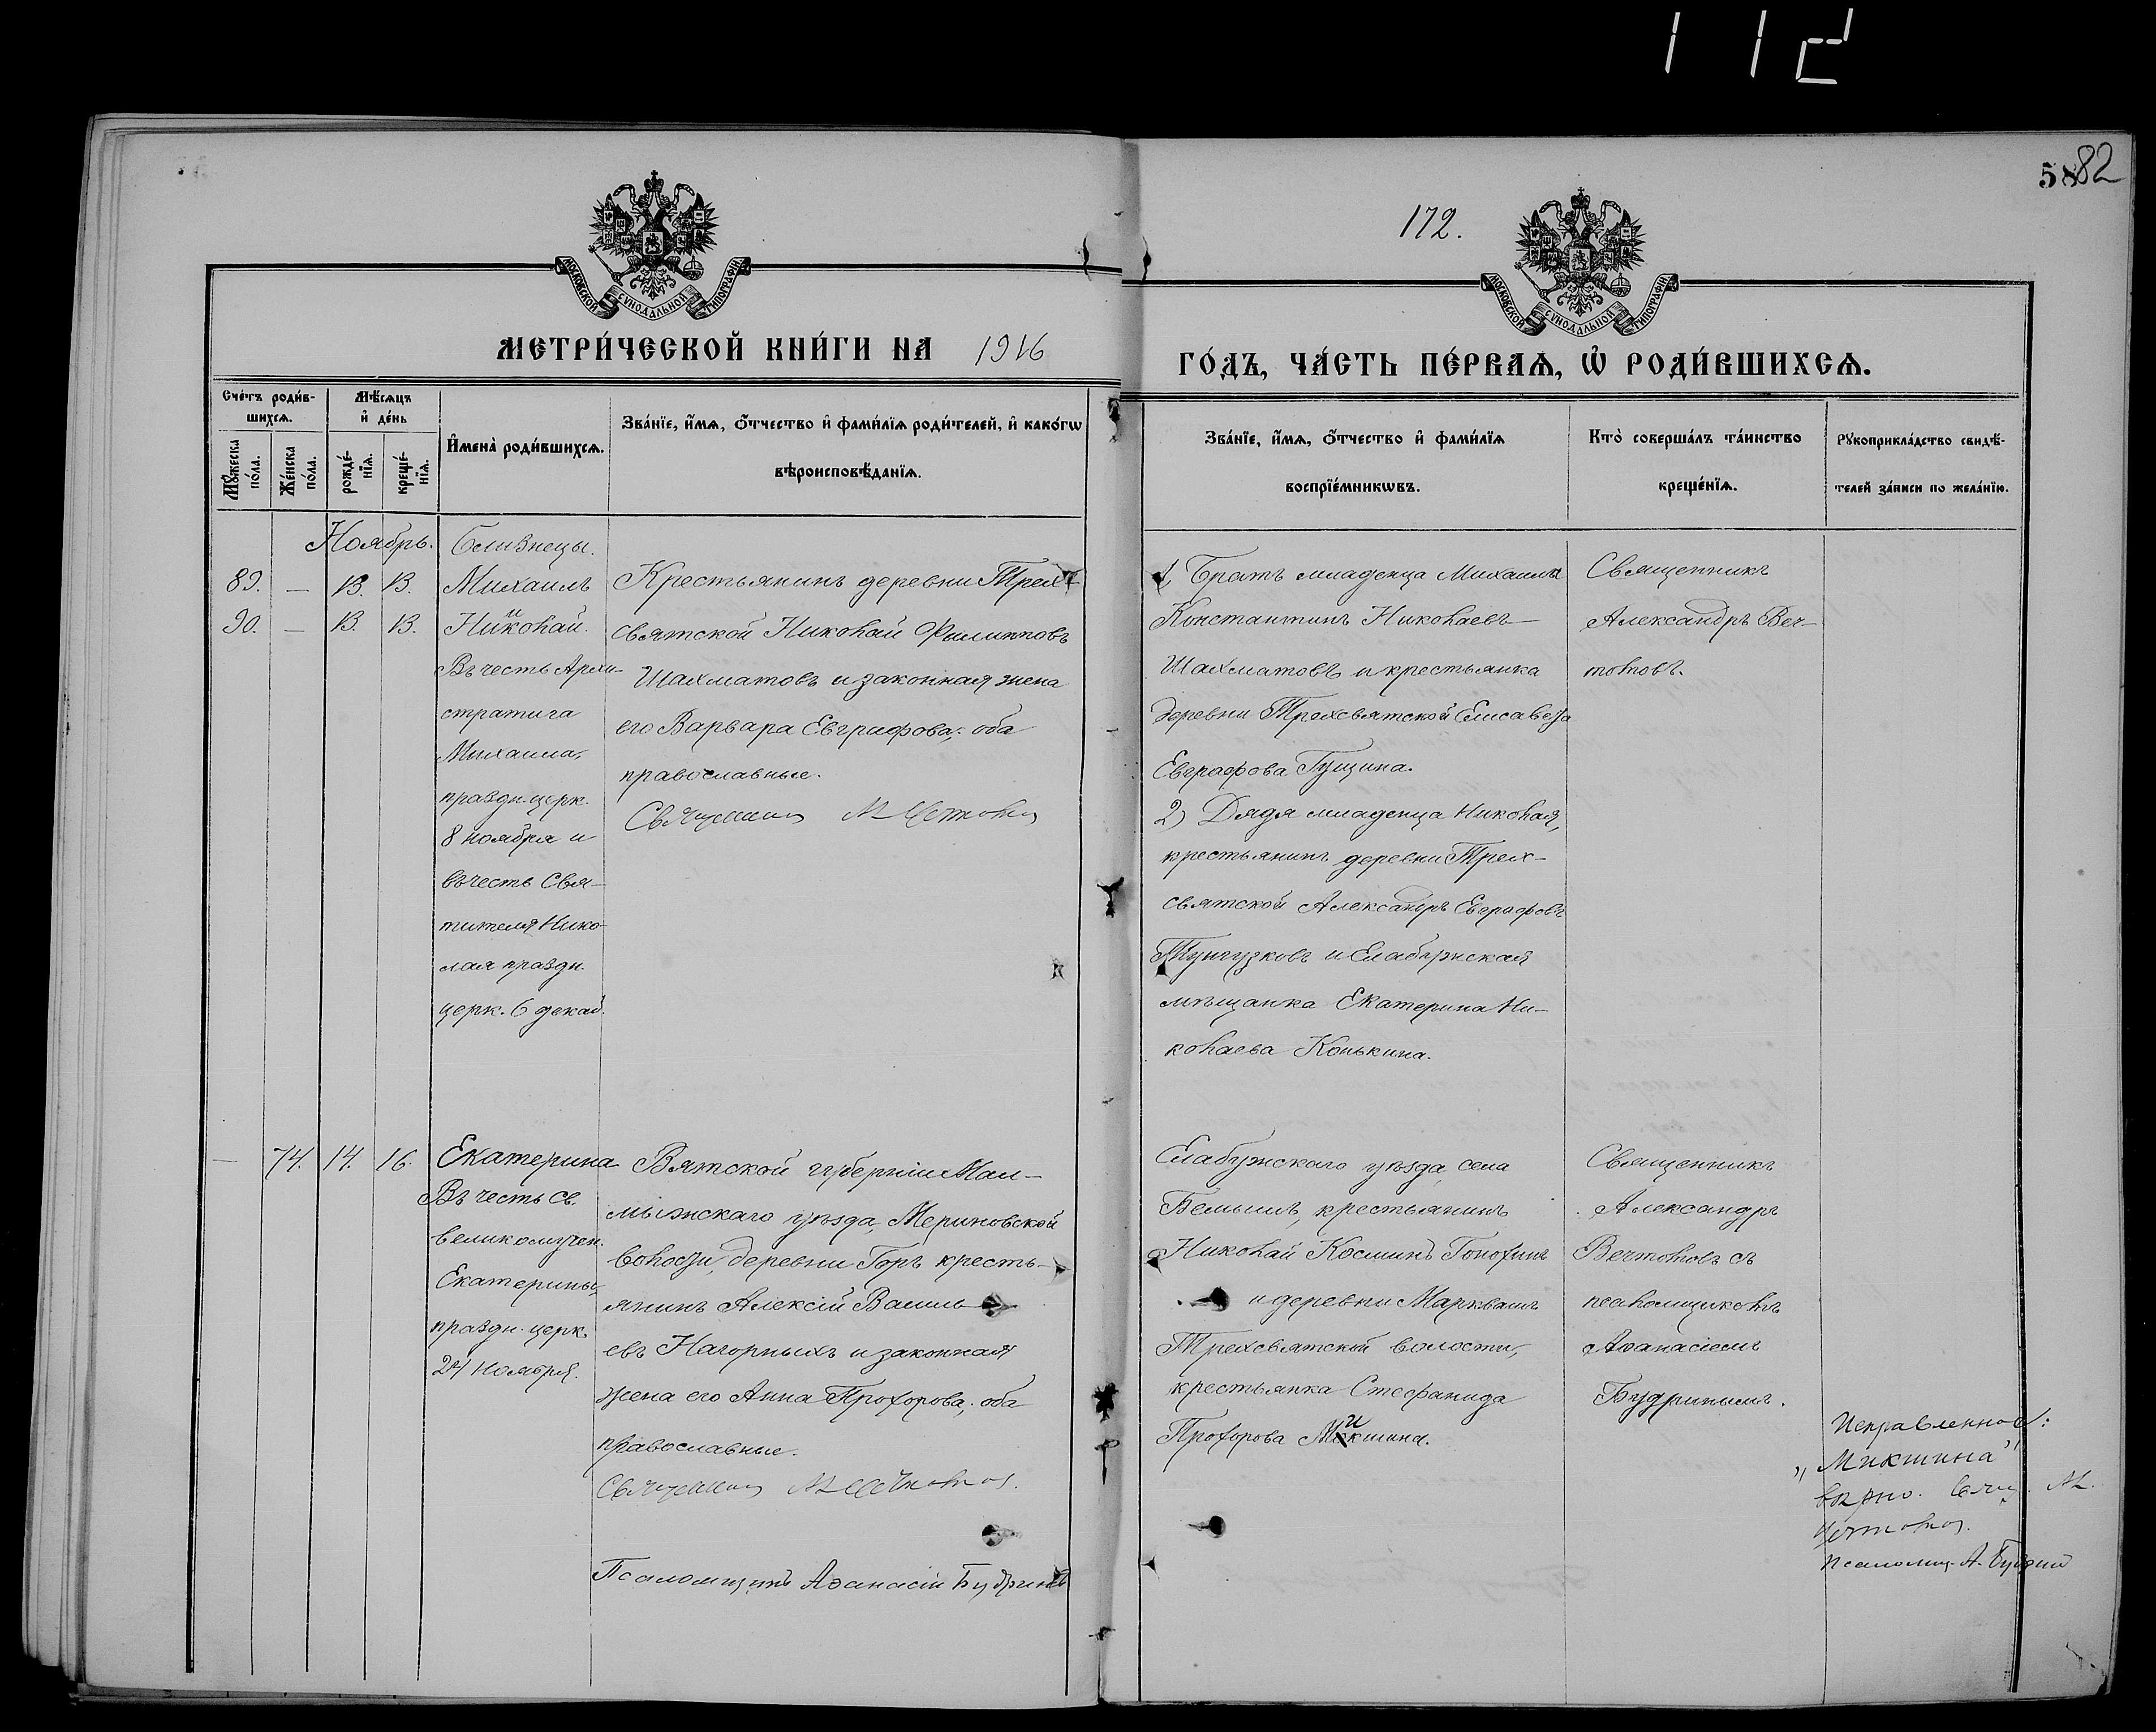 112
5882
172.
МОСКОВСКОЙ СѴНОДАЛЬНОЙ ТИПОГРАФІИ.
МОСКОВСКОЙ СѴНОДАЛЬНОЙ ТИПОГРАФІИ.
МЕТРИ́ЧЕСКОЙ КНИ́ГИ НА 1916
ГО́ДЪ, ЧА́СТЬ ПЕ́РВАѦ, Ѡ҆ РОДИ́ВШИХСѦ.
Сче́тъ роди́в-
шихсѧ.
Мѣ́сѧцъ
и҆ де́нь
Мꙋ́жеска по́ла.
Же́нска по́ла.
рожде́-
нїѧ.
креще́-
нїѧ.
И҆мена̀ роди́вшихсѧ.
Зва́нїе, и҆́мѧ, ѻ҆́тчество и҆ фами́лїѧ роди́телей, и҆ како́гѡ
вѣроисповѣ́данїѧ.
Зва́нїе, и҆́мѧ, ѻ҆́тчество и҆ фами́лїѧ
воспрїе́мникѡвъ.
Кто̀ соверша́лъ та́инство
креще́нїѧ.
Рꙋкоприкла́дство свидѣ́-
телей за́писи по жела́нїю.
Ноябрь. Близнецы.
89. — 13. 13. Михаилъ
90. — 13. 13. и Николай.
Въ честь Архи-
стратига
Михаила,
праздн. церк.
8 ноября и
въ честь Свя-
тителя Нико-
лая праздн.
церк. 6 декаб.
Крестьянинъ деревни Трех-
святской Николай Филипповъ
Шахматовъ и законная жена
его Варвара Евграфова; оба
православные.
1) Братъ младенца Михаила
Константинъ Николаевъ
Шахматовъ и крестьянка
деревни Трехсвятской Елисавета
Евграфова Гущина.
2) Дядя младенца Николая,
крестьянинъ деревни Трех-
святской Александръ Евграфовъ
Тунгузковъ и Елабужская
мѣщанка Екатерина Ни-
колаева Конькина.
Священникъ
Александръ Веч-
томовъ.
— 74. 14. 16. Екатерина
Въ честь св.
великомучен.
Екатерины,
праздн. церк.
24 Ноября.
Вятской губерніи Мал-
мыжскаго уѣзда, Мериновской
волости, деревни Горъ кресть-
янинъ Алексій Василь
евъ Нагорныхъ и законная
жена его Анна Прохорова; оба
православные.
Псаломщикъ Аѳанасій Будринъ
Елабужскаго уѣзда, села
Бемышъ, крестьянинъ
Николай Косминъ
и деревни Марквашъ
Трехсвятской волости,
крестьянка Стефанида
Прохорова Микшина.
Священникъ
Александръ
Вечтомовъ съ
псаломщикомъ
Аѳанасіемъ
Будринымъ.
Исправленное:
„Микшина"
вѣрно. Свящ. Ал.
Вечтомовъ.
Псаломщ. А. Будрин